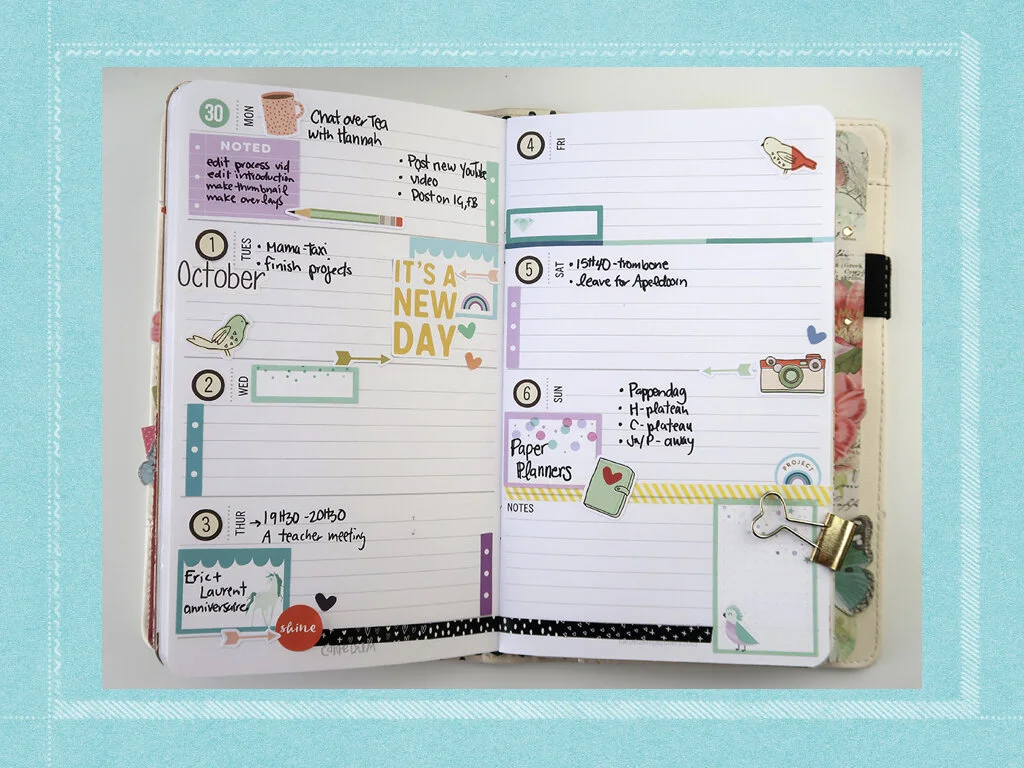 30
MON
Chat over Tea
with Hannah
NOTED
edit process vid
edit introduction
make thumbnail
make overlays
• Post new YouTube
• video
• Post on IG, FB
1
TUES
October
• Mama-taxi
• finish projects
IT'S A
NEW
DAY
2
WED
3
THUR
→19H30-20H30
A teacher meeting
Eric+
Laurent
anniversaire
shine
CARPE DIEM
4
FRI
5
SAT
• 15H40-trombone
• leave for Apeldoorn
6
SUN
• Pappendag
• H-plateau
• C-plateau
• Ja/P-away
Paper
Planners
PROJECT
NOTES